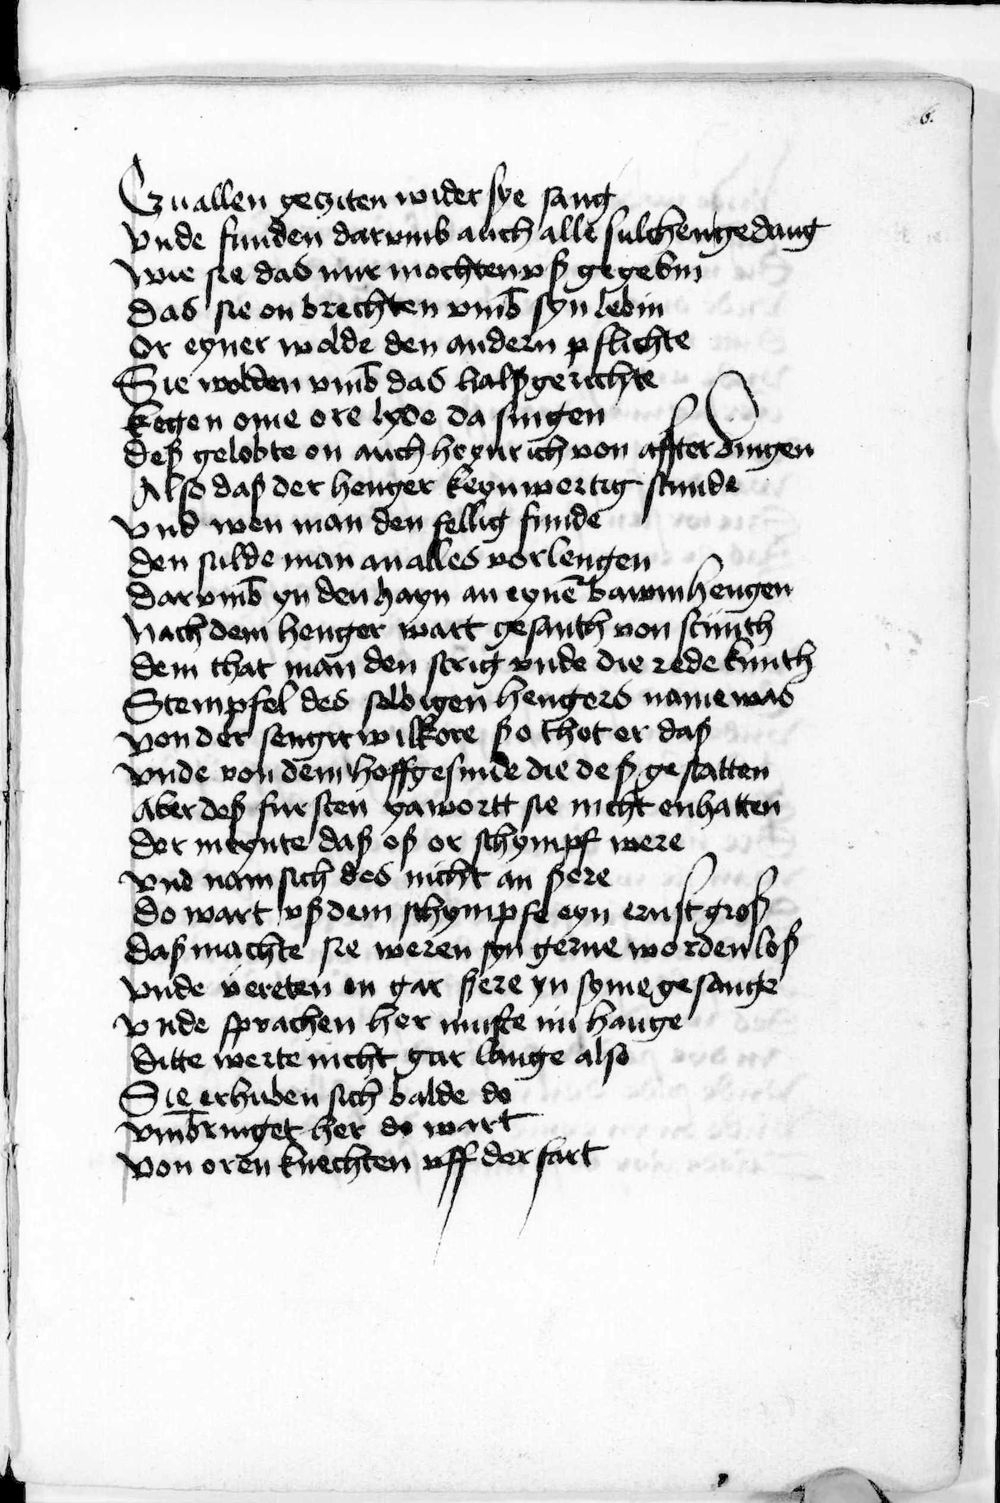 6.
Czu allen gecziten wider sye sang
vnde funden darvmb auch alle sulchen gedang
wie sie das nur mochten vß gegebin
das sie on brechten vmb syn lebin
Or eyner wolde den andern pflichte
Sie wolden vmb das halßgerichte
kegen ome ore lyde da singen
deß gelobte on auch heynrich von affterdingen
Also daß der henger keynwertig stunde
vnd wen man den fellig funde
den sulde man an alles vorlengen
darvmb yn den hayn an eynē bawm hengen
Nach dem henger wart gesanth von stunth
dem that man den strig vnde die rede kunth
Stempfel des selbigen hengers name was
von der senger wilkore ßo thot er daß
vnde von dem hoffgesinde die deß gestatten
Aber deß fursten yawortt sie nicht enhatten
der meynte daß eß or schympf were
vnd nam sich des nicht an ßere
do wart vß dem schympfe eyn ernst groß
daß machte sie weren syn gerne worden loß
vnde vereten en gar ßere yn syme gesange
vnde sprachen her muste nu hange
ditte werte nicht gar lange also
Sie erhuben sich balde do
vmbringet her do wart
von oren knechten vff der fart